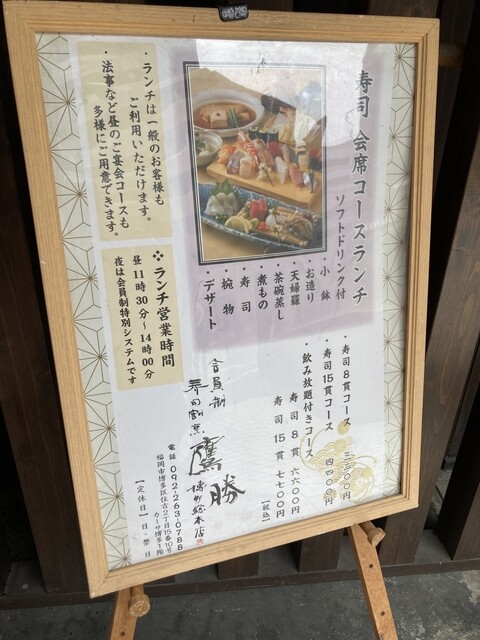 寿司 会席コースランチ
ソフトドリンク付
・小鉢
・お造り
・天婦羅
・茶碗蒸し
・煮もの
・寿司
・椀物
・デザート
・寿司8貫コース 三三〇〇円
・寿司15貫コース 四四〇〇円
・飲み放題付きコース
寿司 8貫 六六〇〇円
寿司 15貫 七七〇〇円
【税込】
・ランチは一般のお客様も
ご利用いただけます。
・法事など昼のご宴会コースも
多様にご用意できます。
❖ ランチ営業時間
昼11時30分〜14時00分
夜は会員制特別システムです
会員制
寿司割烹 鷹勝 博多総本店
電話 092-263-0788
福岡市博多区住吉2丁目15番10号
カーサ博多1階
【定休日】日・祭日